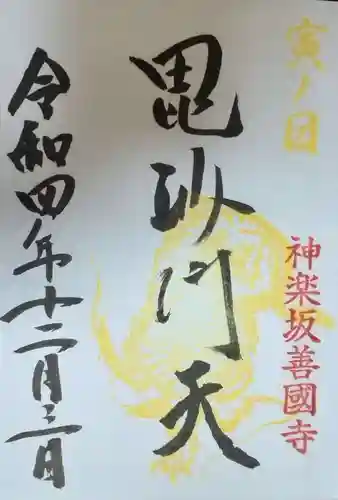 寅ノ日
神楽坂善國寺
毘沙門天
令和四年十二月三日